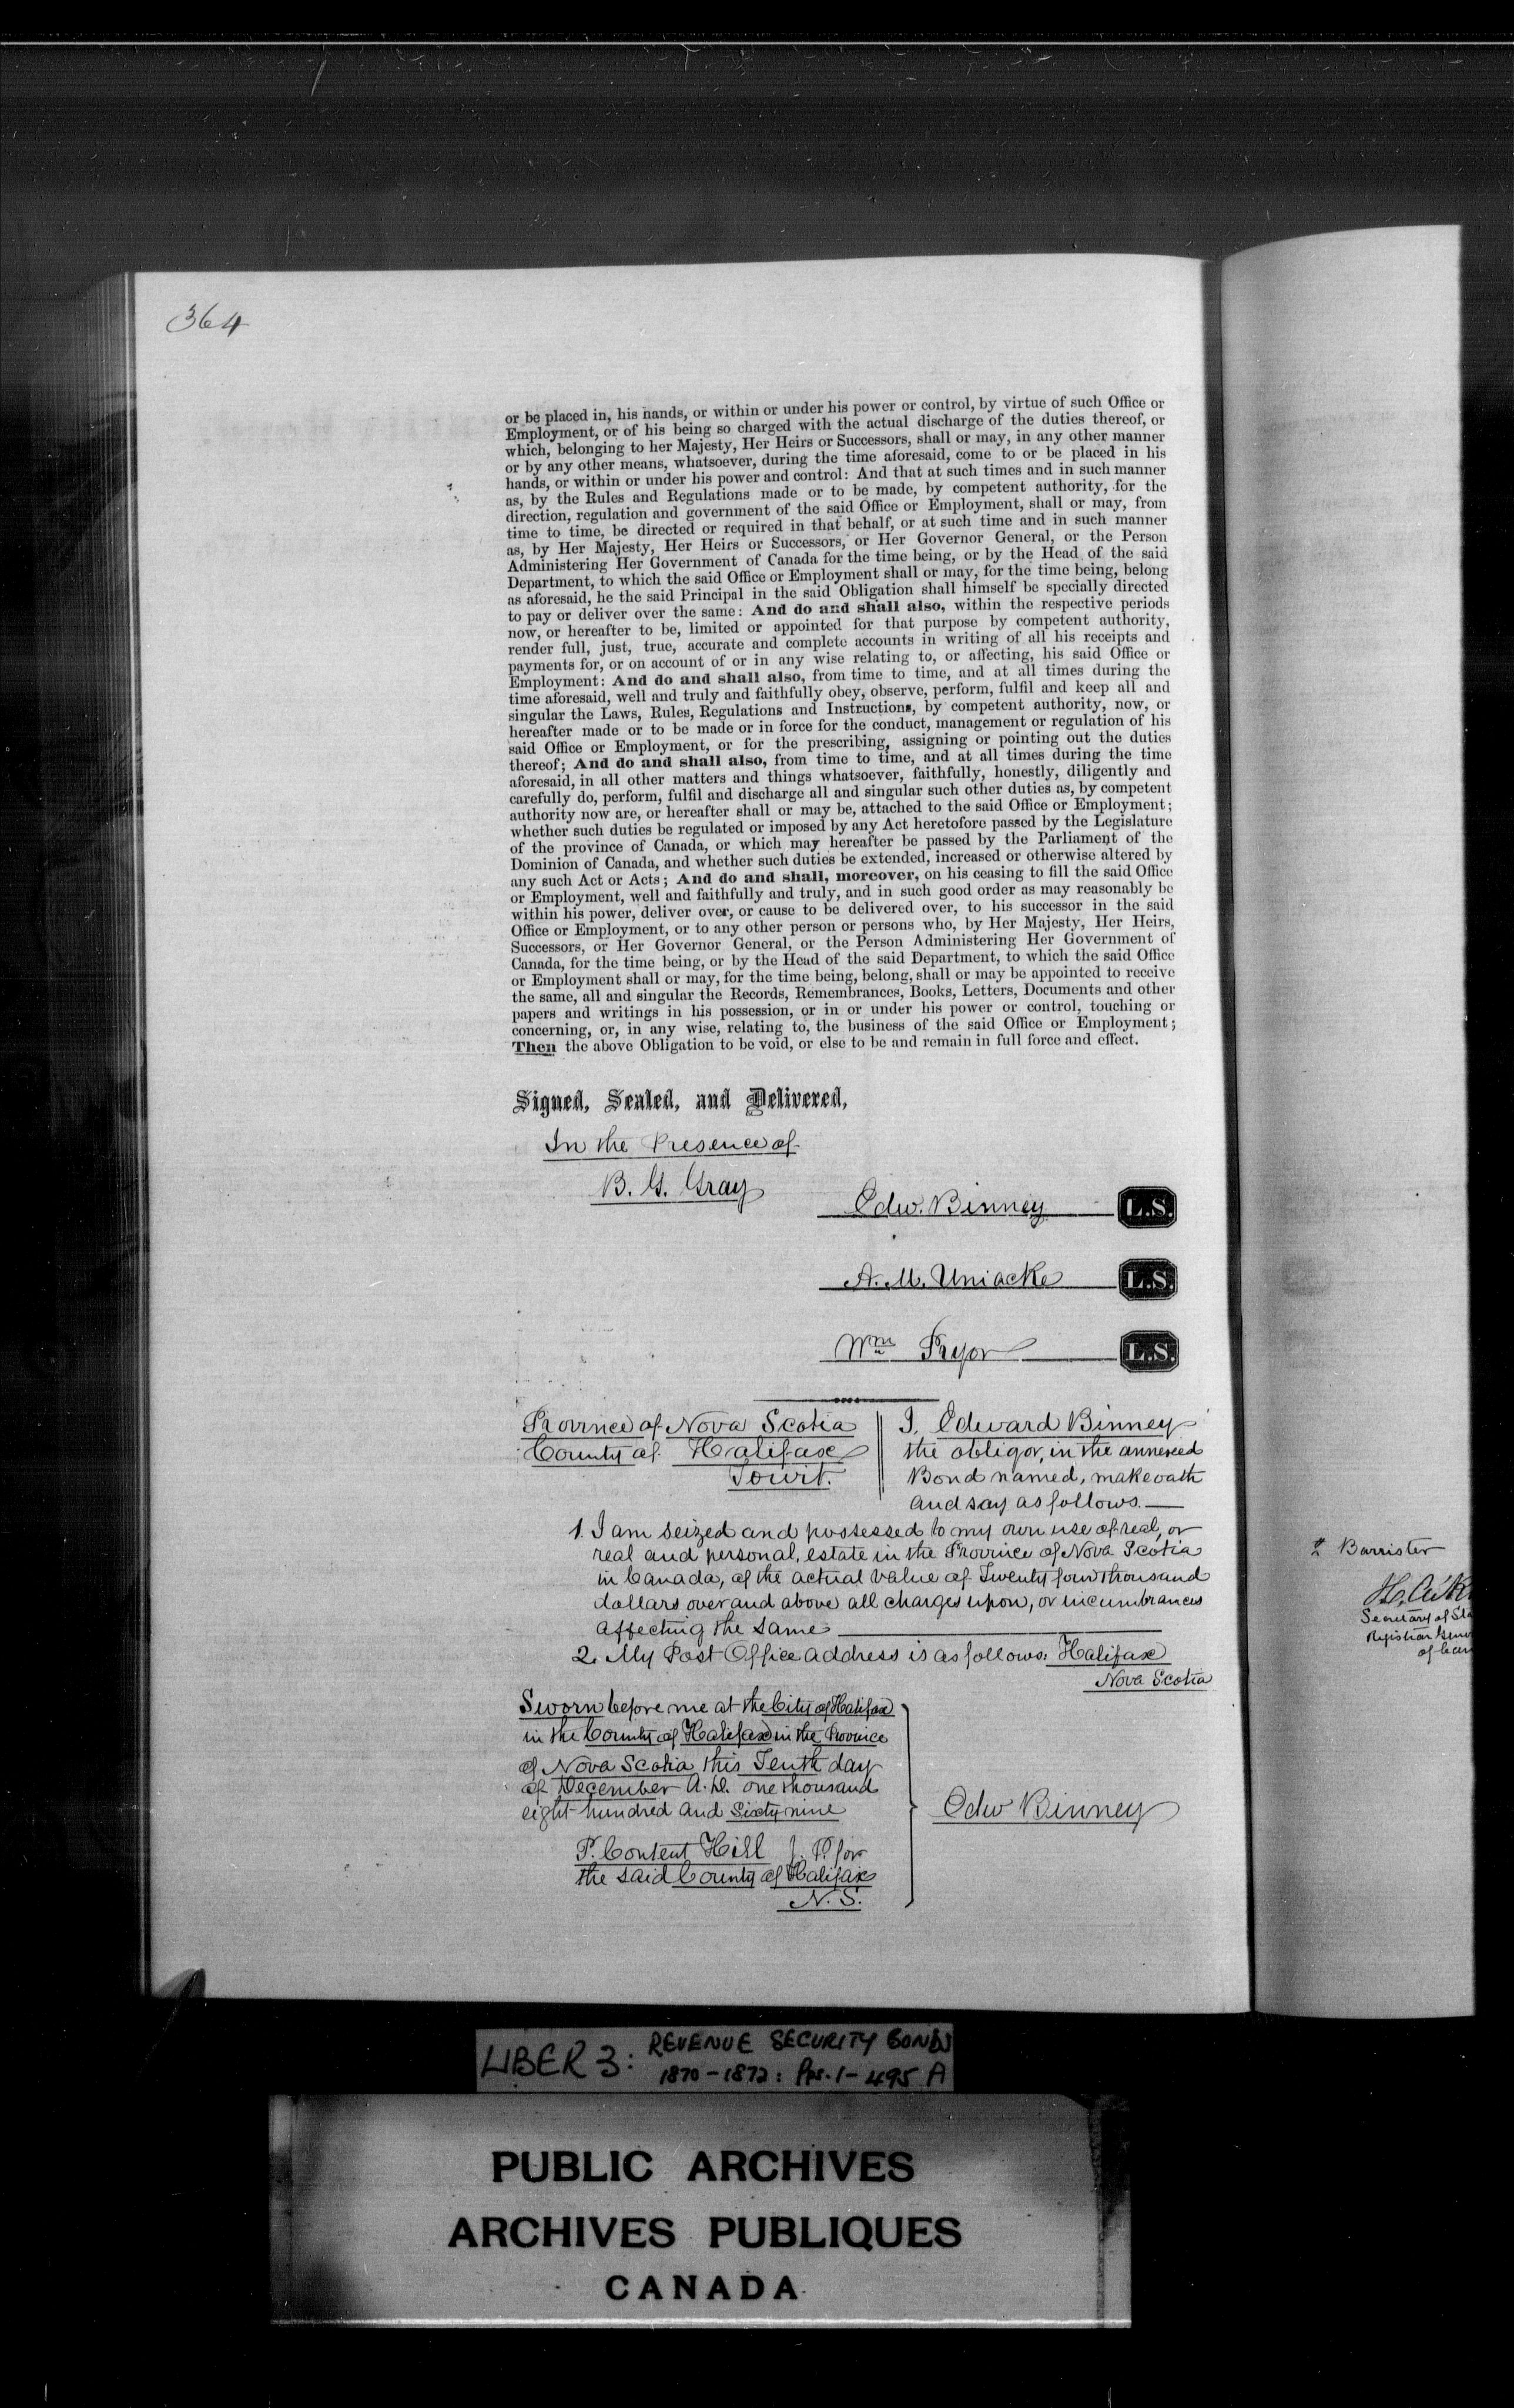 364
or be placed in, his hands, or within or under his power or control, by virtue of such Office or
Employment, or of his being so charged with the actual discharge of the duties thereof, or
which, belonging to her Majesty, Her Heirs or Successors, shall or may, in any other manner
or by any other means, whatsoever, during the time aforesaid, come to or be placed in his
hands, or within or under his power and control: And that at such times and in such manner
as, by the Rules and Regulations made or to be made, by competent authority, for the
direction, regulation and government of the said Office or Employment, shall or may, from
time to time, be directed or required in that behalf, or at such time and in such manner
as, by Her Majesty, Her Heirs or Successors, or Her Governor General, or the Person
Administering Her Government of Canada for the time being, or by the Head of the said
Department, to which the said Office or Employment shall or may, for the time being, belong
as aforesaid, he the said Principal in the said Obligation shall himself be specially directed
to pay or deliver over the same: And do and shall also, within the respective periods
now, or hereafter to be, limited or appointed for that purpose by competent authority,
render full, just, true, accurate and complete accounts in writing of all his receipts and
payments for, or on account of or in any wise relating to, or affecting, his said Office or
Employment: And do and shall also, from time to time, and at all times during the
time aforesaid, well and truly and faithfully obey, observe, perform, fulfil and keep all and
singular the Laws, Rules, Regulations and Instructions, by competent authority, now, or
hereafter made or to be made or in force for the conduct, management or regulation of his
said Office or Employment, or for the prescribing, assigning or pointing out the duties
thereof; And do and shall also, from time to time, and at all times during the time
aforesaid, in all other matters and things whatsoever, faithfully, honestly, diligently and
carefully do, perform, fulfil and discharge all and singular such other duties as, by competent
authority now are, or hereafter shall or may be, attached to the said Office or Employment;
whether such duties be regulated or imposed by any Act heretofore passed by the Legislature
of the province of Canada, or which may hereafter be passed by the Parliament of the
Dominion of Canada, and whether such duties be extended, increased or otherwise altered by
any such Act or Acts; And do and shall, moreover, on his ceasing to fill the said Office
or Employment, well and faithfully and truly, and in such good order as may reasonably be
within his power, deliver over, or cause to be delivered over, to his successor in the said
Office or Employment, or to any other person or persons who, by Her Majesty, Her Heirs,
Successors, or Her Governor General, or the Person Administering Her Government of
Canada, for the time being, or by the Head of the said Department, to which the said Office
or Employment shall or may, for the time being, belong, shall or may be appointed to receive
the same, all and singular the Records, Remembrances, Books, Letters, Documents and other
papers and writings in his possession, or in or under his power or control, touching or
concerning, or, in any wise, relating to, the business of the said Office or Employment;
Then the above Obligation to be void, or else to be and remain in full force and effect.
Signed, Sealed, and Delivered,
In the Presence of
B. G. Gray
Edw. Binney L.S.
A. M. Uniacke L.S.
Wm Pryor L.S.
Province of Nova Scotia
County of Halifax
Towit.
I, Edward Binney
the obligor, in the annexed
Bond named, make oath
and say as follows.—
1. I am seized and possessed to my own use of real, or
real and personal, estate in the Province of Nova Scotia
in Canada, of the actual value of Twenty four thousand
dollars over and above all charges upon, or incumbrances
affecting the same
2. My Post Office address is as follows: Halifax
Nova Scotia
Sworn before me at the City of Halifax
in the County of Halifax in the Province
of Nova Scotia this Tenth day
of December A.D. one thousand
eight hundred and Sixty nine
P. Content Hill J.P. for
the said County of Halifax
N.S.
Edw Binney
Barrister
Secretary of
LIBER 3: REVENUE SECURITY BONDS
1870-1872: Pps. 1-495 A
PUBLIC ARCHIVES
ARCHIVES PUBLIQUES
CANADA